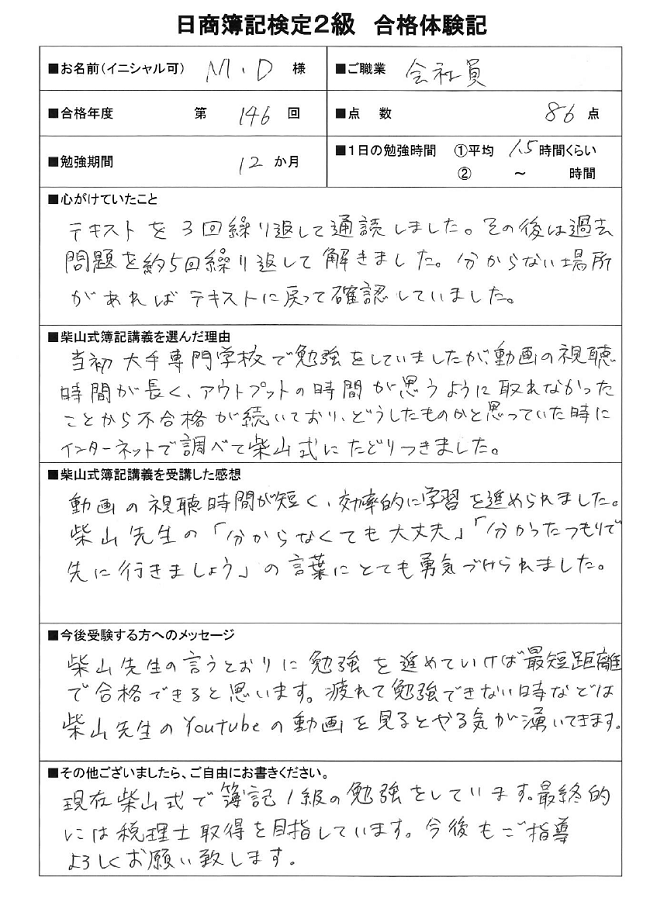 日商簿記検定2級 合格体験記
■お名前(イニシャル可) M.D 様 ■ご職業 会社員
■合格年度 第 146 回 ■点 数 86 点
■勉強期間 12 か月 ■1日の勉強時間 ①平均 1.5 時間くらい
② ～ 時間
■心がけていたこと
テキストを3回繰り返して通読しました。その後は過去
問題を約5回繰り返して解きました。分からない場所
があればテキストに戻って確認していました。
■柴山式簿記講義を選んだ理由
当初大手専門学校で勉強をしていましたが、動画の視聴
時間が長く、アウトプットの時間が思うように取れなかった
ことから不合格が続いており、どうしたものかと思っていた時に
インターネットで調べて柴山式にたどりつきました。
■柴山式簿記講義を受講した感想
動画の視聴時間が短く、効率的に学習を進められました。
柴山先生の「分からなくても大丈夫」「分かったつもりで
先に行きましょう」の言葉にとても勇気づけられました。
■今後受験する方へのメッセージ
柴山先生の言うとおりに勉強を進めていけば最短距離
で合格できると思います。疲れて勉強できない時などは
柴山先生のYoutubeの動画を見るとやる気が湧いてきます。
■その他ございましたら、ご自由にお書きください。
現在柴山式で簿記1級の勉強をしています。最終的
には税理士取得を目指しています。今後もご指導
よろしくお願い致します。